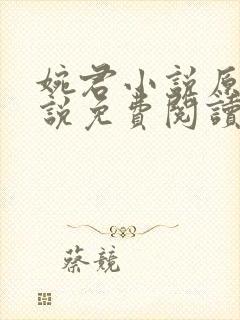 婉君小說原
說免費閱讀
蔡競